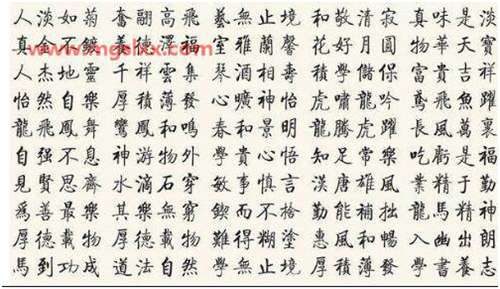 人淡如菊 奮翮高飛 藝無止境 和敬清寂 真味是淡
真金不鍍 善德澤福 室雅蘭馨 花好月圓 物華天寶
www.mgslxx.com
人杰地靈 千祥雲集 琴酒相壽 積學儲保 富貴吉祥
怡然自樂 厚積薄發 心曠神怡 虎嘯龍吟 鳶飛魚躍
龍飛鳳舞 鸞鳳和鳴 春和景明 龍騰虎躍 長風萬裏
自强不息 神游物外 學貴心悟 知足常樂 吃虧是福
見賢思齊 水滴石穿 敏事慎言 漢唐雄風 業精于勤
爲善最樂 其樂無窮 鍥而不捨 勤能補拙 龍馬精神
厚德載物 厚德載物 難得糊塗 惠風和暢 入幽出朗
馬到功成 道法自然 學無止境 厚積薄發 學書養志